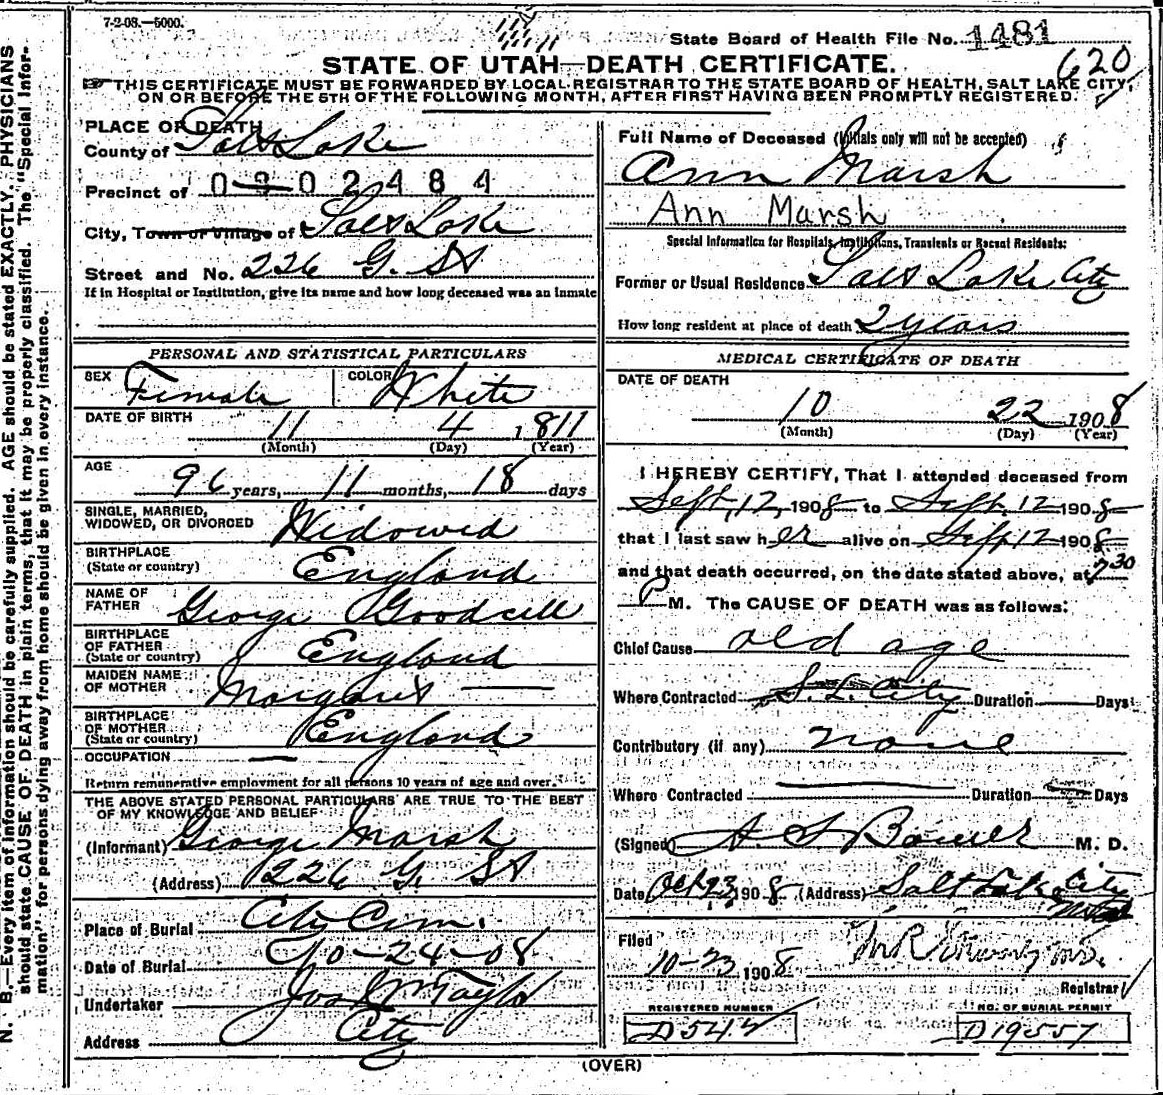 7-2-08.—5000.
State Board of Health File No. 1481
620
STATE OF UTAH—DEATH CERTIFICATE.
THIS CERTIFICATE MUST BE FORWARDED BY LOCAL REGISTRAR TO THE STATE BOARD OF HEALTH, SALT LAKE CITY,
ON OR BEFORE THE 5TH OF THE FOLLOWING MONTH, AFTER FIRST HAVING BEEN PROMPTLY REGISTERED.
PLACE OF DEATH
County of Salt Lake
Precinct of 0302484
City, Town or Village of Salt Lake
Street and No. 226 G. St
If in Hospital or Institution, give its name and how long deceased was an inmate
PERSONAL AND STATISTICAL PARTICULARS
SEX Female COLOR White
DATE OF BIRTH 11 4 1811
(Month) (Day) (Year)
AGE 96 years, 11 months, 18 days
SINGLE, MARRIED,
WIDOWED, OR DIVORCED Widowed
BIRTHPLACE
(State or country) England
NAME OF
FATHER George Goodcell
BIRTHPLACE
OF FATHER
(State or country) England
MAIDEN NAME
OF MOTHER Margaret —
BIRTHPLACE
OF MOTHER
(State or country) England
OCCUPATION —
Return remunerative employment for all persons 10 years of age and over.
THE ABOVE STATED PERSONAL PARTICULARS ARE TRUE TO THE BEST
OF MY KNOWLEDGE AND BELIEF
(Informant) George Marsh
(Address) 226 G. St
Place of Burial City Cem.
Date of Burial 10-24-08
Undertaker Jos Taylor
Address City
Full Name of Deceased (Initials only will not be accepted)
Ann Marsh
Ann Marsh
Special Information for Hospitals, Institutions, Transients or Recent Residents:
Former or Usual Residence Salt Lake City
How long resident at place of death 2 years
MEDICAL CERTIFICATE OF DEATH
DATE OF DEATH
10 22 1908
(Month) (Day) (Year)
I HEREBY CERTIFY, That I attended deceased from
Sept, 12, 1908 to Sept, 12 1908
that I last saw her alive on Sept 12 1908
and that death occurred, on the date stated above, at 7 30
P M. The CAUSE OF DEATH was as follows:
Chief Cause old age
Where Contracted S. L. City Duration Days
Contributory (if any) none
Where Contracted Duration Days
(Signed) A. S. Bower M. D.
Date Oct 23, 1908 (Address) Salt Lake City
Filed
10-23 1908
Registrar
REGISTERED NUMBER
D544
NO. OF BURIAL PERMIT
D19557
(OVER)
N. B.—Every item of information should be carefully supplied. AGE should be stated EXACTLY. PHYSICIANS
should state CAUSE OF DEATH in plain terms, that it may be properly classified. The "Special Infor-
mation" for persons dying away from home should be given in every instance.